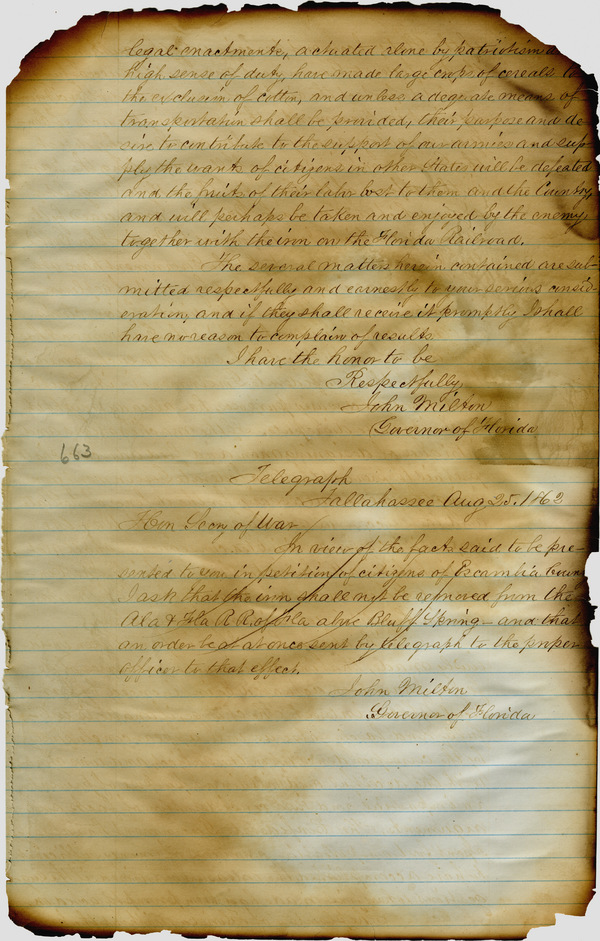 legal enactments, actuated alone by patriotism &
high sense of duty, have made large crops of cereals to
the exclusion of cotton, and unless adequate means of
transportation shall be provided, their purpose and de-
sire to contribute to the support of our armies and sup-
ply the wants of citizens in other States will be defeated
and the fruits of their labor lost to them and the Country,
and will perhaps be taken and enjoyed by the enemy,
together with the iron on the Florida Railroad.
The several matters herein contained are sub-
mitted respectfully and earnestly to your serious consid-
eration, and if they shall receive it promptly I shall
have no reason to complain of results.
I have the honor to be
Respectfully,
John Milton
Governor of Florida
663
Telegraph
Tallahassee Aug 25. 1862
Hon Secry of War
In view of the facts said to be pre-
sented to you in petition of citizens of Escambia Coun
I ask that the iron shall not be removed from the
Ala & Fla R R of Fla above Bluff Spring - and that
an order be at once sent by telegraph to the proper
officer to that effect.
John Milton
Governor of Florida